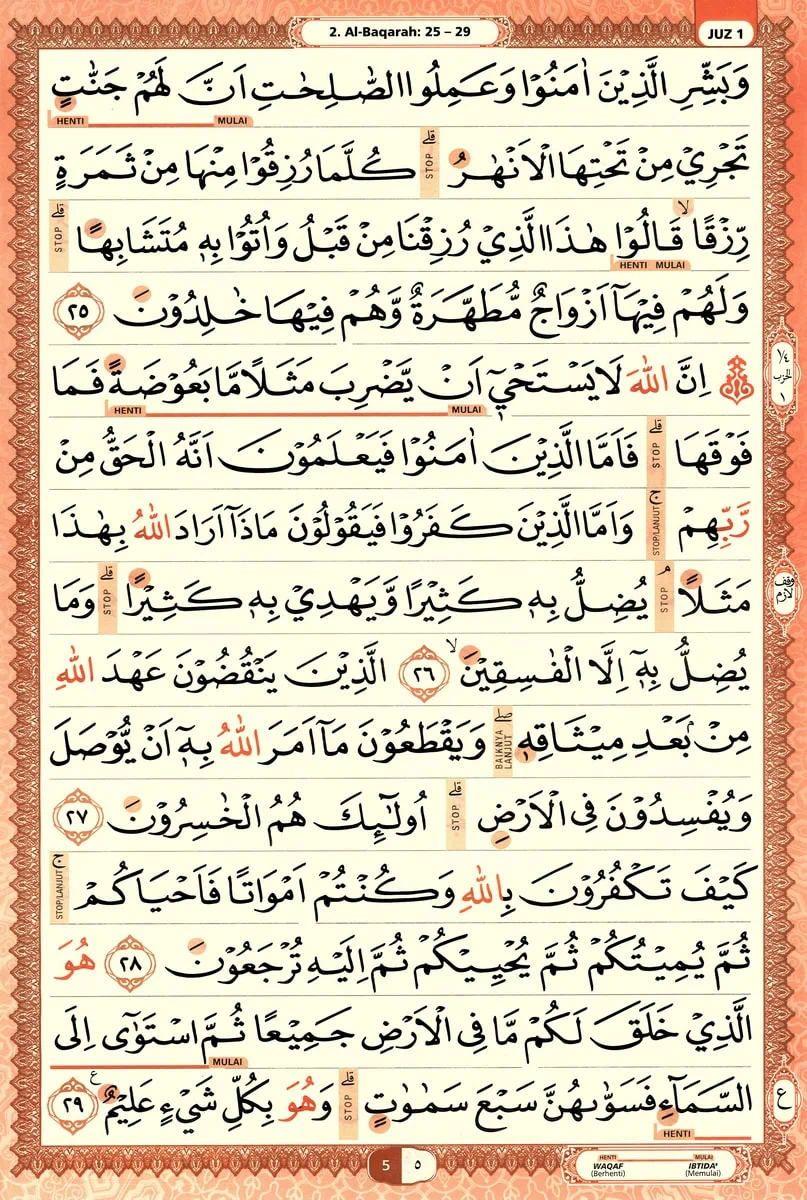 2. Al-Baqarah: 25 – 29
JUZ 1
وَبَشِّرِ الَّذِيْنَ اٰمَنُوْا وَعَمِلُوا الصّٰلِحٰتِ اَنَّ لَهُمْ جَنّٰتٍ
MULAI HENTI
تَجْرِيْ مِنْ تَحْتِهَا الْاَنْهٰرُ ۗ STOP كُلَّمَا رُزِقُوْا مِنْهَا مِنْ ثَمَرَةٍ
رِّزْقًا ۙ قَالُوْا هٰذَا الَّذِيْ رُزِقْنَا مِنْ قَبْلُ وَاُتُوْا بِهٖ مُتَشَابِهًا ۗ STOP
HENTI MULAI
وَلَهُمْ فِيْهَآ اَزْوَاجٌ مُّطَهَّرَةٌ وَّهُمْ فِيْهَا خٰلِدُوْنَ ٢٥
۞ اِنَّ اللّٰهَ لَا يَسْتَحْيٖٓ اَنْ يَّضْرِبَ مَثَلًا مَّا بَعُوْضَةً فَمَا
MULAI HENTI
١/٤ الحزب ١
فَوْقَهَا ۗ STOP فَاَمَّا الَّذِيْنَ اٰمَنُوْا فَيَعْلَمُوْنَ اَنَّهُ الْحَقُّ مِنْ
رَّبِّهِمْ ۚ STOP/LANJUT وَاَمَّا الَّذِيْنَ كَفَرُوْا فَيَقُوْلُوْنَ مَاذَآ اَرَادَ اللّٰهُ بِهٰذَا
مَثَلًا ۘ STOP يُضِلُّ بِهٖ كَثِيْرًا وَّيَهْدِيْ بِهٖ كَثِيْرًا ۗ STOP وَمَا
وقف لازم
يُضِلُّ بِهٖٓ اِلَّا الْفٰسِقِيْنَ ۙ ٢٦ الَّذِيْنَ يَنْقُضُوْنَ عَهْدَ اللّٰهِ
مِنْۢ بَعْدِ مِيْثَاقِهٖ ۖ BAIKNYA LANJUT وَيَقْطَعُوْنَ مَآ اَمَرَ اللّٰهُ بِهٖٓ اَنْ يُّوْصَلَ
وَيُفْسِدُوْنَ فِى الْاَرْضِ ۗ STOP اُولٰۤىِٕكَ هُمُ الْخٰسِرُوْنَ ٢٧
كَيْفَ تَكْفُرُوْنَ بِاللّٰهِ وَكُنْتُمْ اَمْوَاتًا فَاَحْيَاكُمْ ۚ STOP/LANJUT
ثُمَّ يُمِيْتُكُمْ ثُمَّ يُحْيِيْكُمْ ثُمَّ اِلَيْهِ تُرْجَعُوْنَ ٢٨ هُوَ
الَّذِيْ خَلَقَ لَكُمْ مَّا فِى الْاَرْضِ جَمِيْعًا ثُمَّ اسْتَوٰٓى اِلَى
MULAI
السَّمَاۤءِ فَسَوّٰىهُنَّ سَبْعَ سَمٰوٰتٍ ۗ STOP وَهُوَ بِكُلِّ شَيْءٍ عَلِيْمٌ ࣖ ٢٩
HENTI
ع
5 ٥
HENTI MULAI
WAQAF IBTIDA'
(Berhenti) (Memulai)